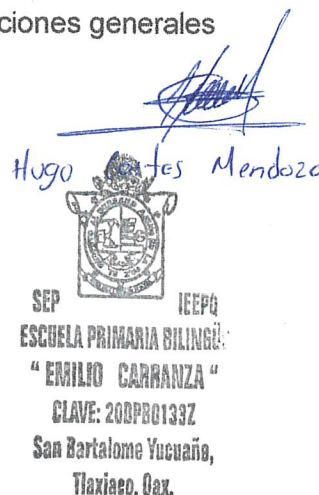 ciones generales
Hugo Mendoza
SEP IEEPO
ESCUELA PRIMARIA BILINGÜE
" EMILIO CARRANZA "
CLAVE: 20DPB0139Z
San Bartolome Yucuañe,
Tlaxiaco, Oax.